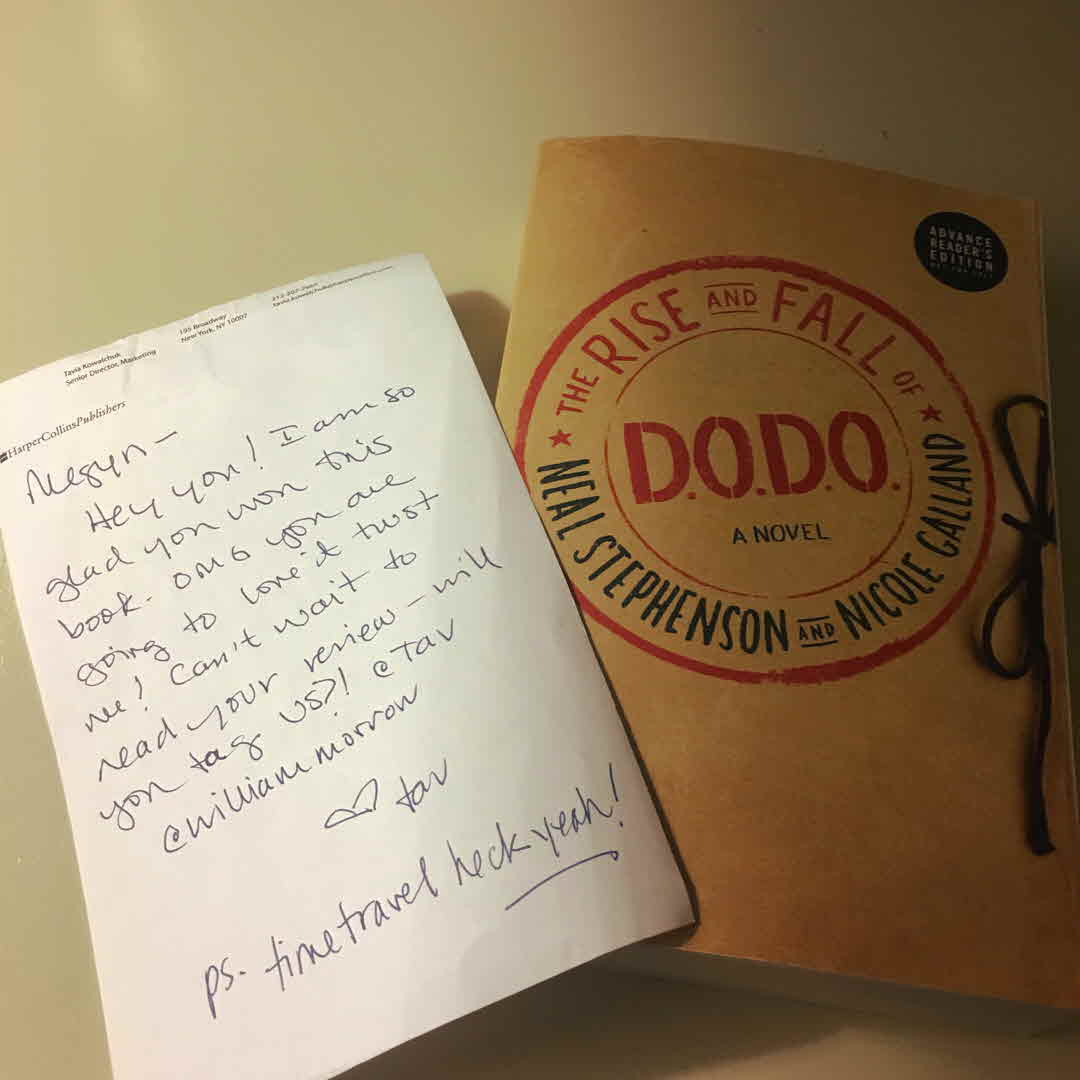 Tavia Kowalchuk
Senior Director, Marketing
195 Broadway
New York, NY 10007
HarperCollinsPublishers
Megyn —
Hey you! I am so
glad you won this
book. OMG you are
going to love it trust
me! Can't wait to
read your review — will
you tag us?! @tav
@williammorrow
♡ tav
ps. time travel heck yeah!
ADVANCE
READER'S
EDITION
★ THE RISE AND FALL OF ★
D.O.D.O.
A NOVEL
NEAL STEPHENSON AND NICOLE GALLAND